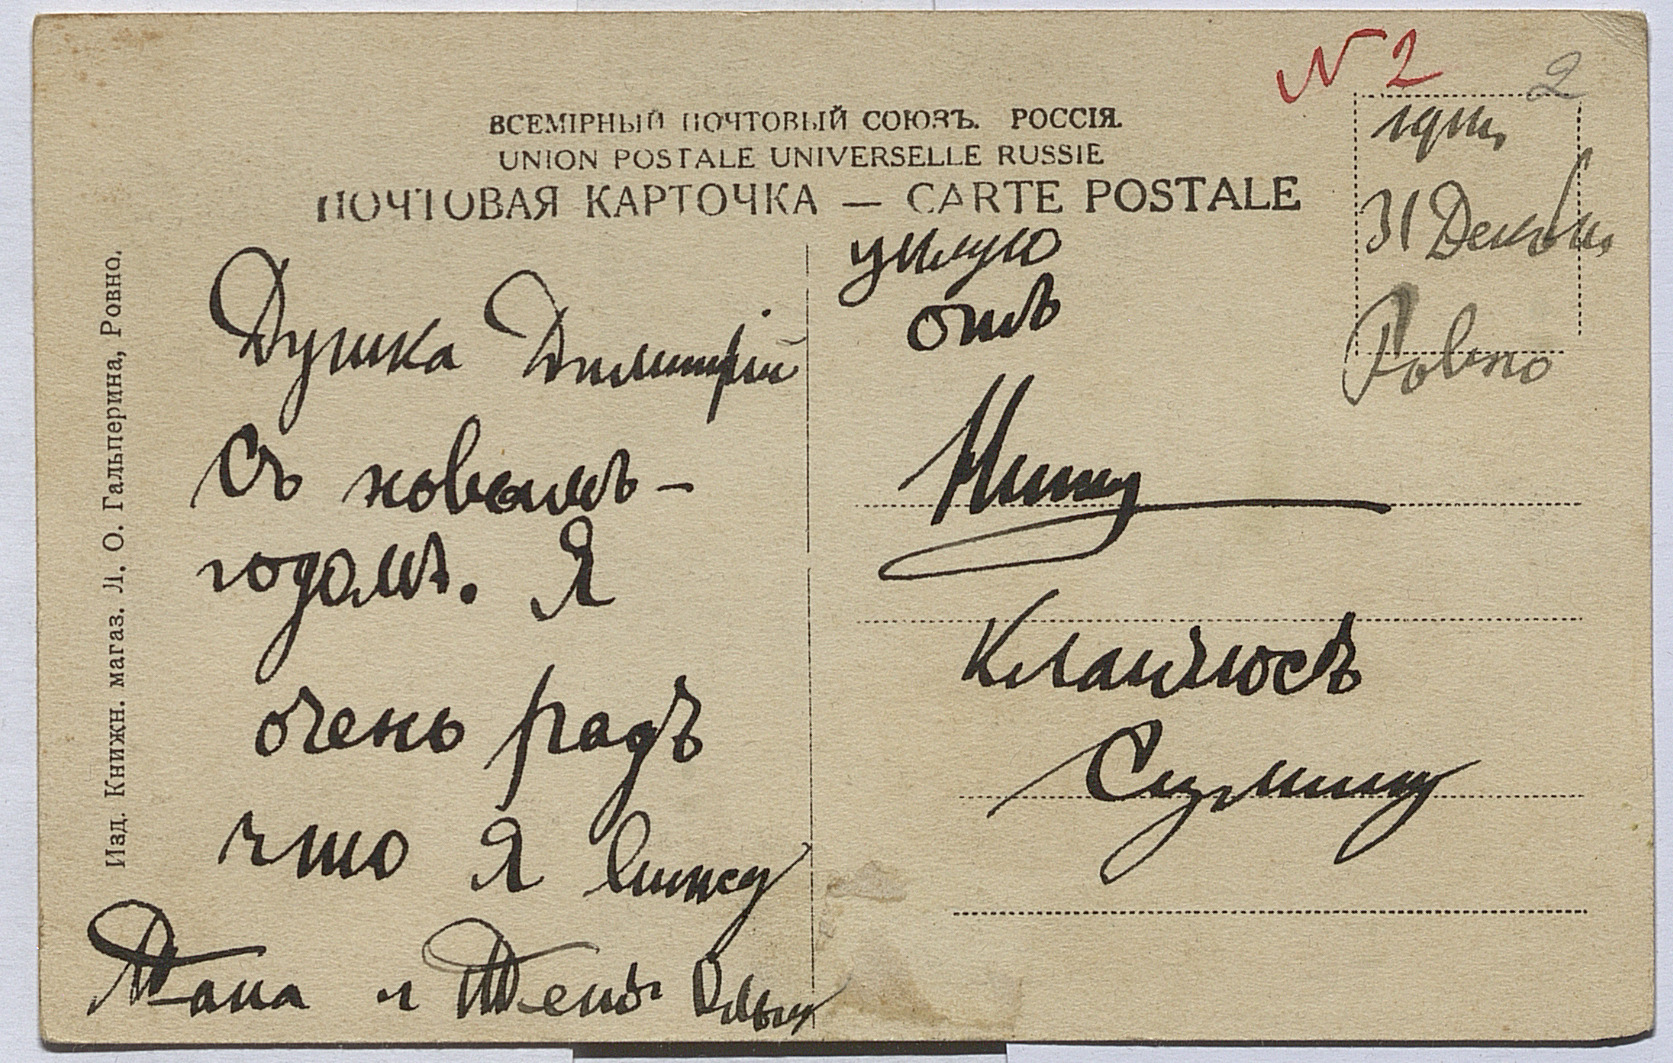 N 2
2
ВСЕМІРНЫЙ ПОЧТОВЫЙ СОЮЗЪ. РОССІЯ.
UNION POSTALE UNIVERSELLE RUSSIE
ПОЧТОВАЯ КАРТОЧКА — CARTE POSTALE
Изд. Книжн. магаз. Л. О. Гальперина, Ровно.
Душка Димитрій
Съ новымъ-
годомъ. Я
очень радъ
что я вижу
Папа и
цѣлую
отъ
Кланяюсъ
31
Ровно